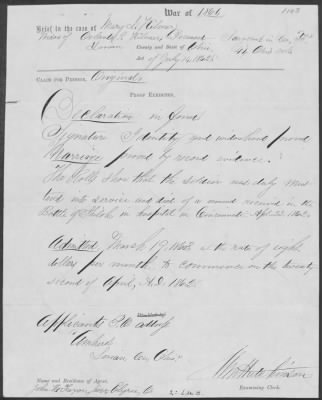 War of 1861
Brief in the case of Mary S. Hilmer
Widow of Deceased Sergeant in Co.
Lorain County and State of Ohio, Ohio Vols
Act of July 14, 1862.
CLAIM FOR PENSION. Original.
PROOF EXHIBITED.
Declaration in form
Signature Identity and widowhood proved
Marriage proved by record evidence.
The Rolls show that the soldier was duly mus
tered into service and died of a wound received in the
Battle of Shiloh in hospital in Cincinnati April 22, 1862.
Admitted March 19, 1863 at the rate of eight
dollars per month, to commence on the twenty
second of April, A.D. 1862.
Applicants P.O. address
Amherst
Lorain Co. Ohio
Examining Clerk.
Name and Residence of Agent.
John